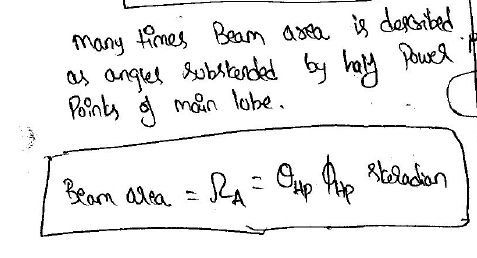 many times Beam area is described
as angles substended by half Power
Points of main lobe.
Beam area = Ω_A = θ_HP ϕ_HP steradian